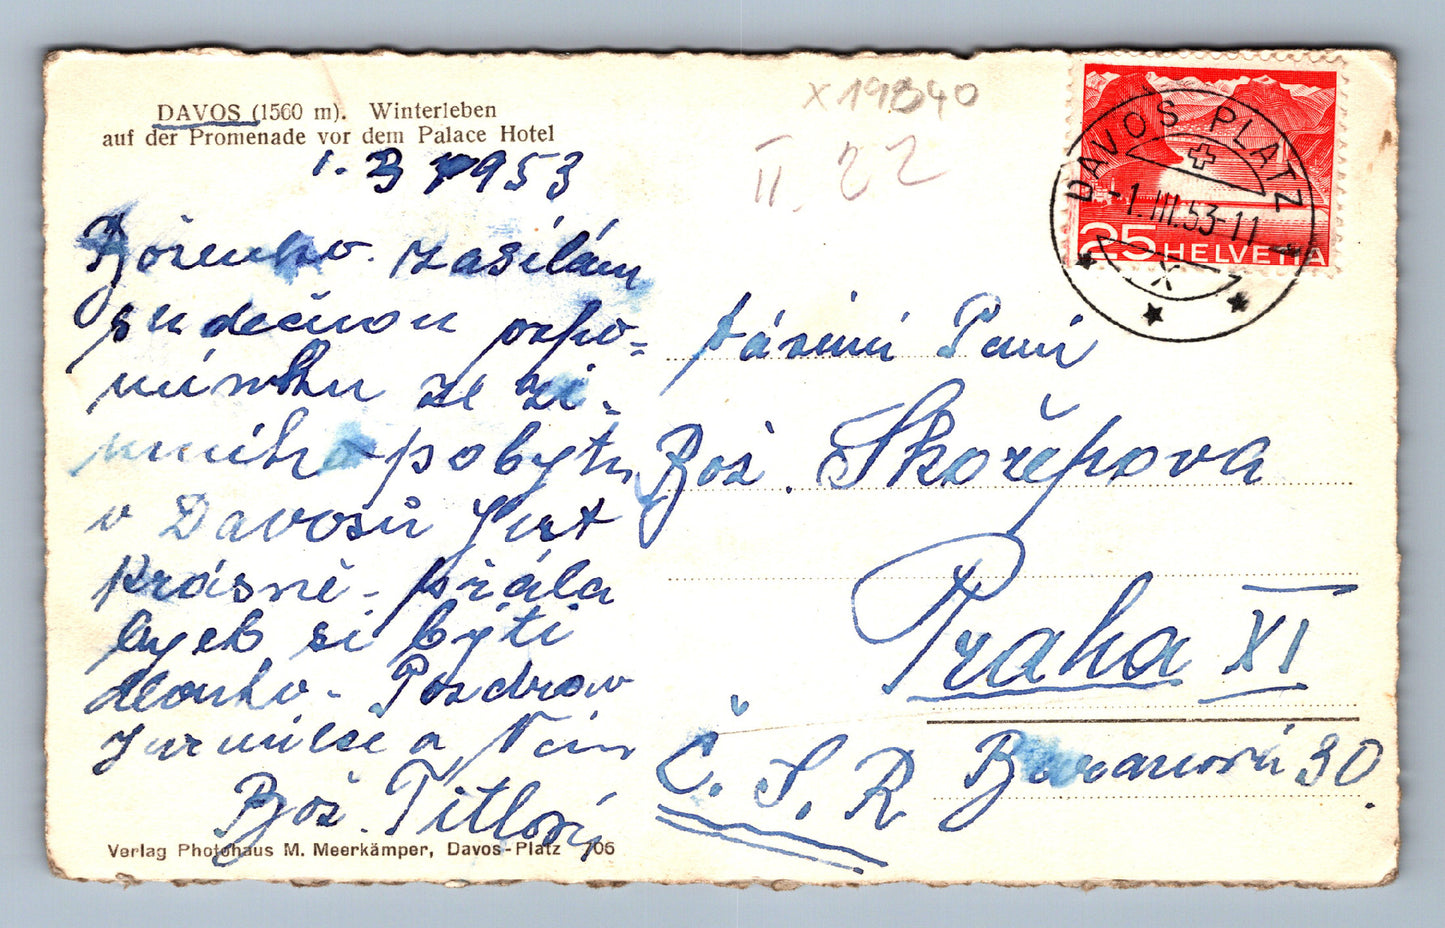 DAVOS (1560 m). Winterleben
auf der Promenade vor dem Palace Hotel
1. 3 1953
Boženko. zasílám
srdečnou vzpo=
mínku ze zi-
mního pobytu
v Davosů jest
krásně - přála
bych si býti
dlouho - Pozdrav
Jarmilce a Vám
Bož. Titlová
Verlag Photohaus M. Meerkämper, Davos-Platz 706
x 19840
II. 22
DAVOS PLATZ
-1.III.53-11
25 HELVETIA
X
Vážená Paní
Bož. Skořepova
Praha XI
Č. S. R
Baranová 30.